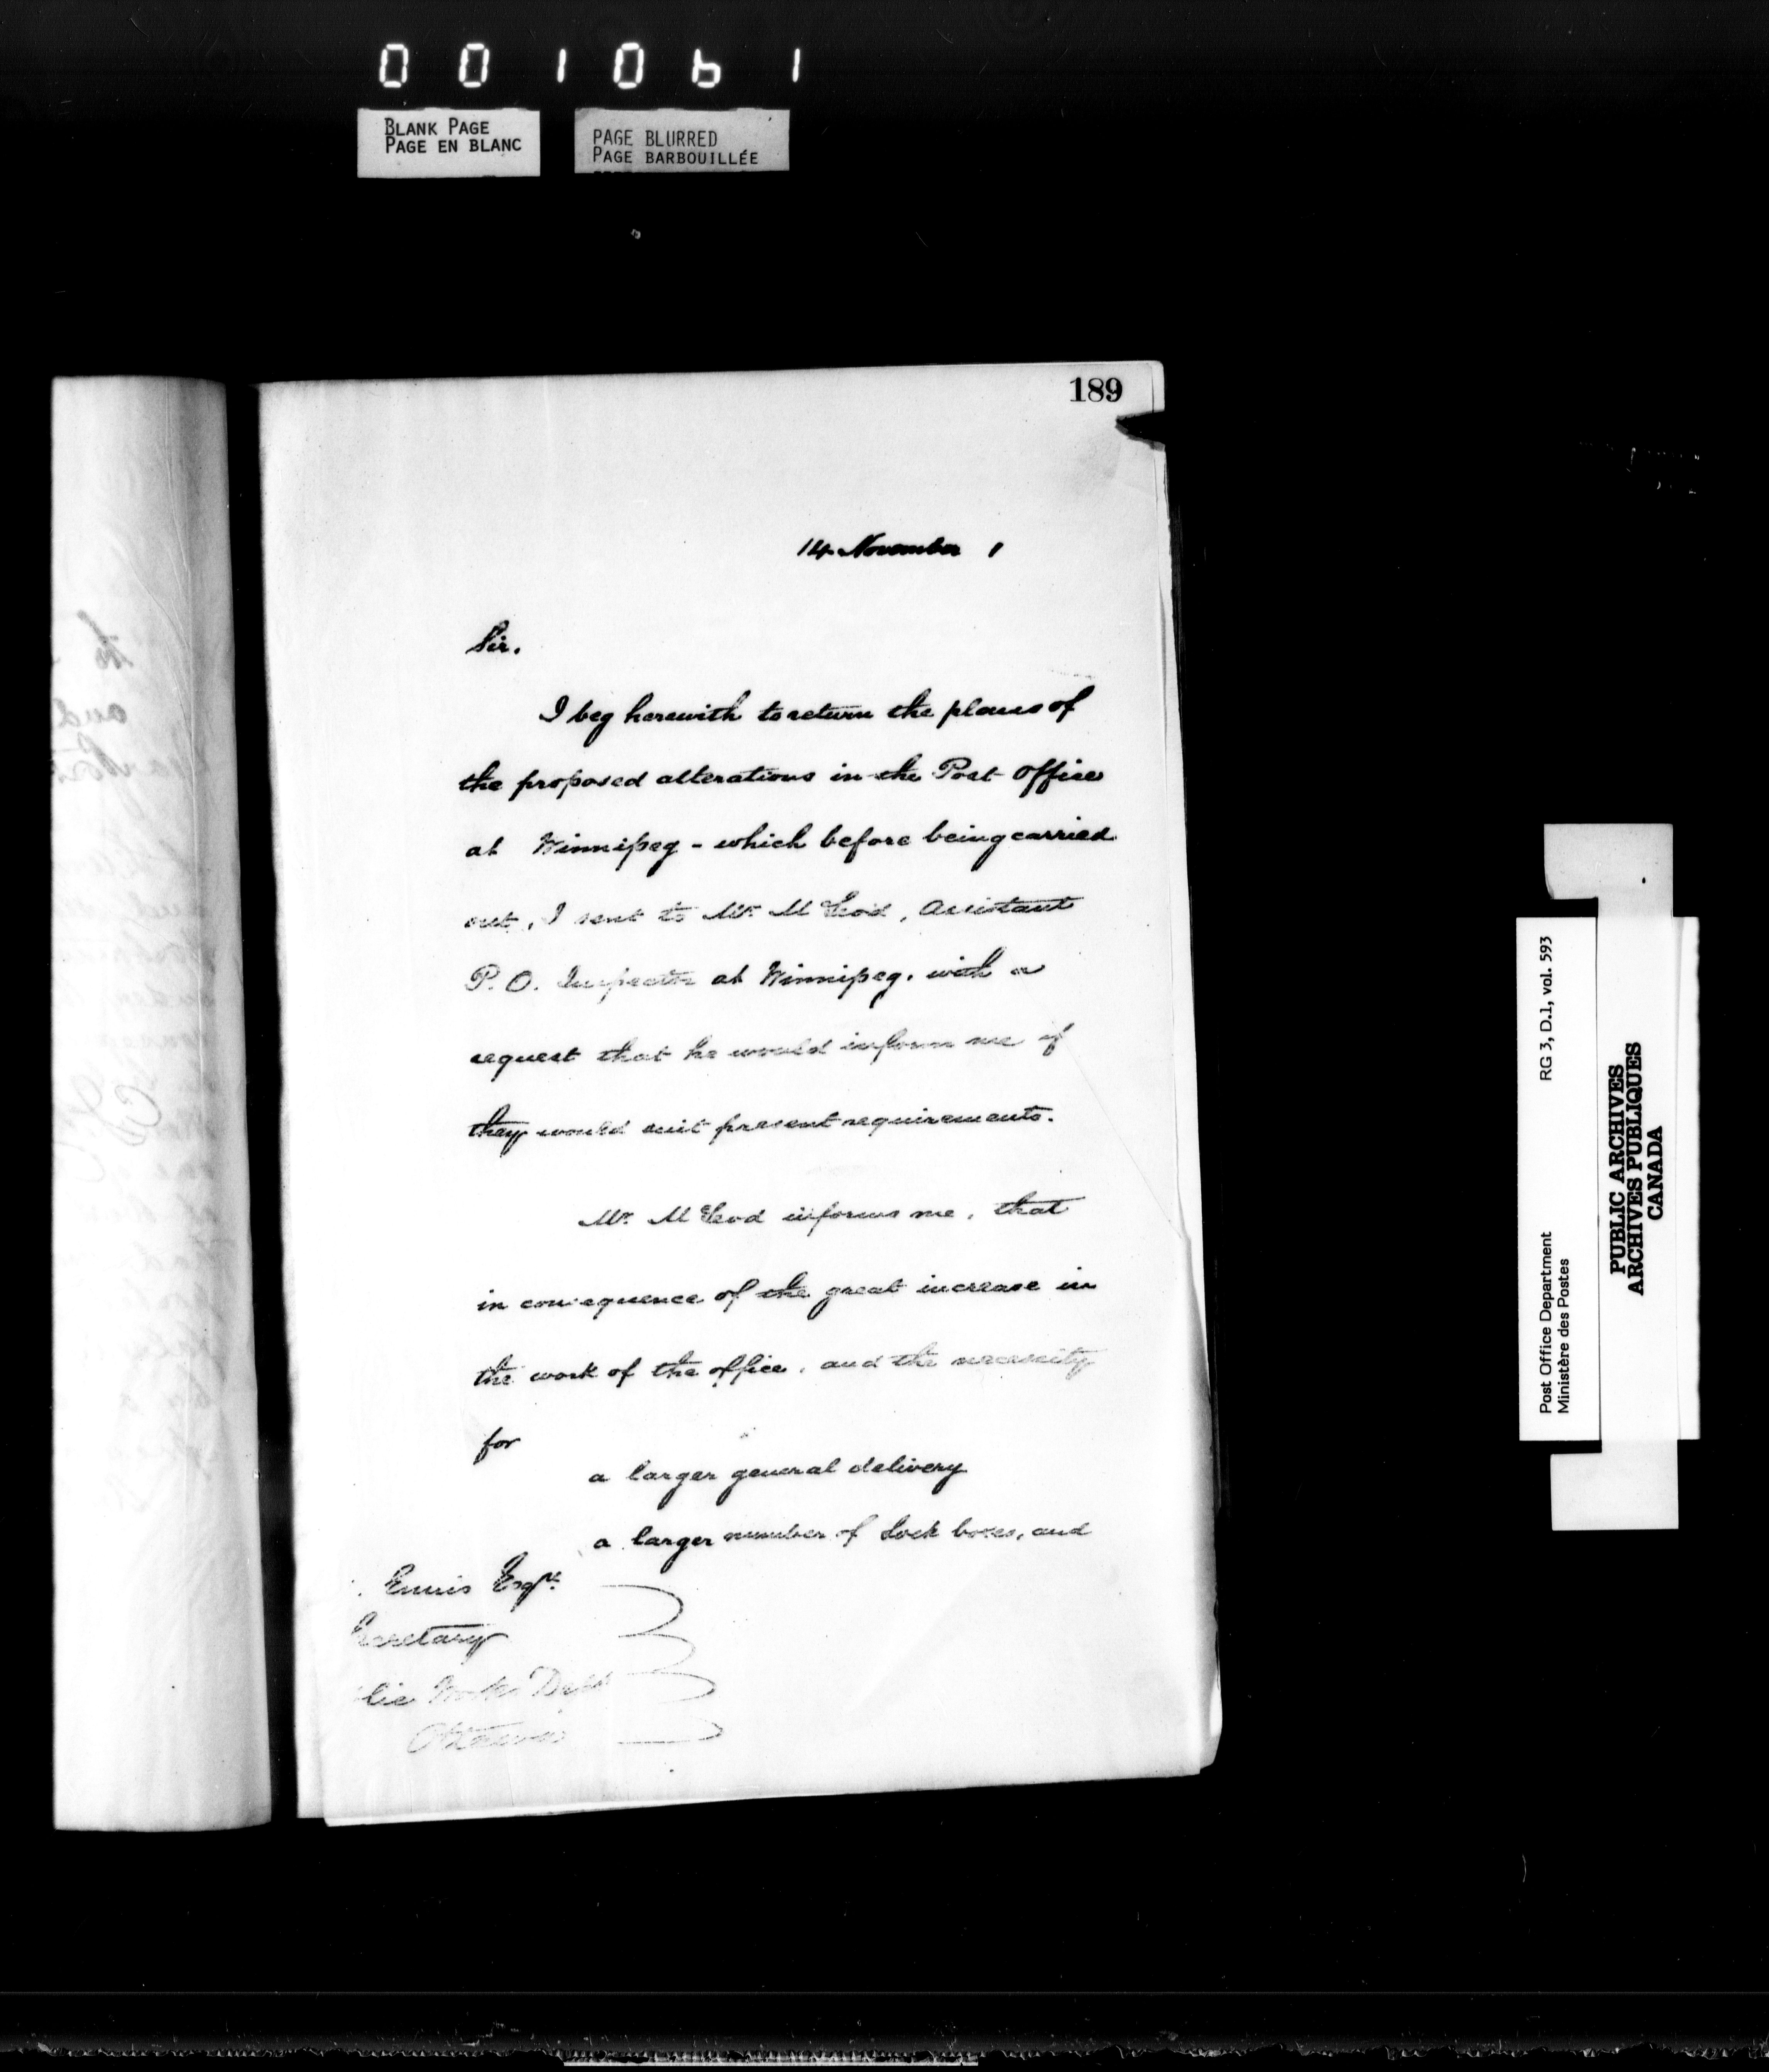 001061
BLANK PAGE
PAGE EN BLANC
PAGE BLURRED
PAGE BARBOUILLÉE
189
14 November 1
Sir.
I beg herewith to return the plans of
the proposed alterations in the Post Office
at Winnipeg - which before being carried
out, I sent to Mr. McLeod, Assistant
P. O. Inspector at Winnipeg, with a
request that he would inform me if
they would suit present requirements.
Mr. McLeod informs me, that
in consequence of the great increase in
the work of the office, and the necessity
for
a larger general delivery
a larger number of Lock boxes, and
Ennis Esqre.
Secretary
lic Works Dept
Ottawa
Post Office Department
Ministère des Postes
RG 3, D.1, vol. 593
PUBLIC ARCHIVES
ARCHIVES PUBLIQUES
CANADA